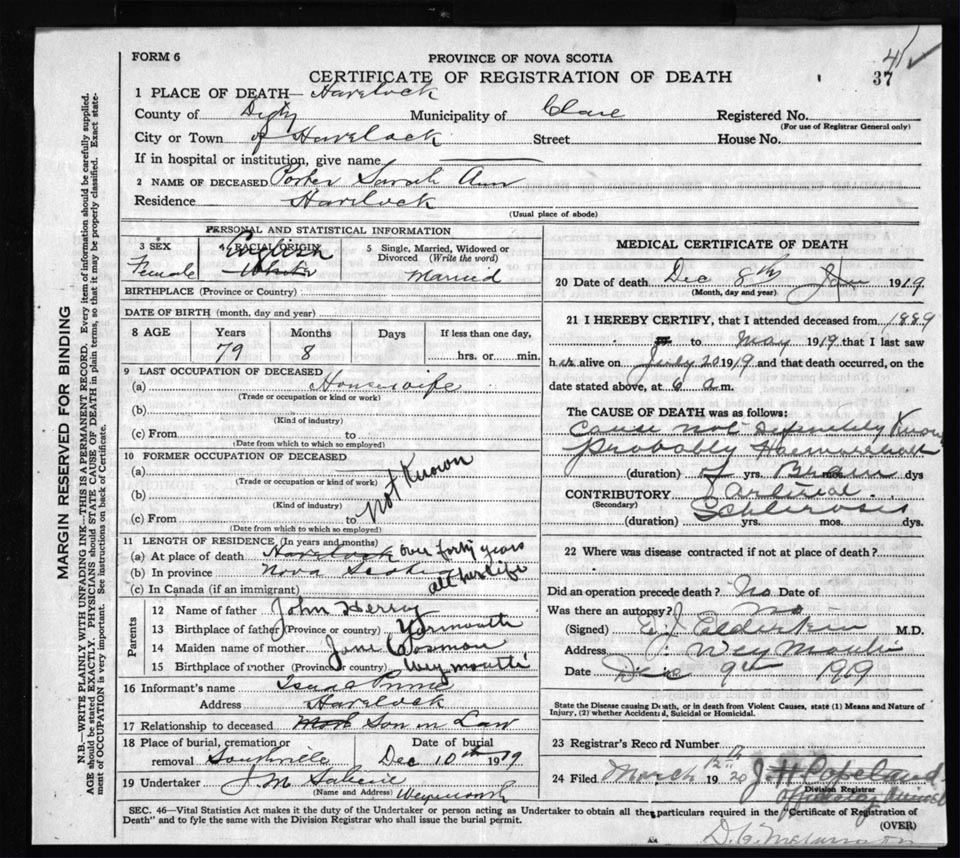 FORM 6
PROVINCE OF NOVA SCOTIA
41
CERTIFICATE OF REGISTRATION OF DEATH
37
1 PLACE OF DEATH— Havelock
County of Digby Municipality of Clare Registered No.
(For use of Registrar General only)
City or Town of Havelock Street House No.
If in hospital or institution, give name
2 NAME OF DECEASED Porter Sarah Ann
Residence Havelock
(Usual place of abode)
PERSONAL AND STATISTICAL INFORMATION
3 SEX 4 RACIAL ORIGIN 5 Single, Married, Widowed or Divorced (Write the word)
Female English White Married
BIRTHPLACE (Province or Country)
DATE OF BIRTH (month, day and year)
8 AGE Years Months Days If less than one day,
79 8 hrs. or min.
9 LAST OCCUPATION OF DECEASED
(a) Housewife
(Trade or occupation or kind or work)
(b)
(Kind of industry)
(c) From to
(Date from which to which so employed)
10 FORMER OCCUPATION OF DECEASED
(a)
(Trade or occupation or kind or work)
(b) Not Known
(Kind of industry)
(c) From to
(Date from which to which so employed)
11 LENGTH OF RESIDENCE (In years and months)
(a) At place of death Havelock over forty years
(b) In province Nova Scotia all her life
(c) In Canada (if an immigrant)
Parents
12 Name of father John Hersey
13 Birthplace of father (Province or country) Yarmouth
14 Maiden name of mother Jane Cosman
15 Birthplace of mother (Province or country) Weymouth
16 Informant's name Isaac Prime
Address Havelock
17 Relationship to deceased Son in Law
18 Place of burial, cremation or Date of burial
removal Southville Dec 10th 1919
19 Undertaker J. M.
(Name and Address) Weymouth
MEDICAL CERTIFICATE OF DEATH
20 Date of death Dec 8th 1919
(Month, day and year)
21 I HEREBY CERTIFY, that I attended deceased from 1889
to May 1919 that I last saw
her alive on July 20 1919 and that death occurred, on the
date stated above, at 6 a.m.
The CAUSE OF DEATH was as follows:
Cause not definitely Known
probably Haemorrhage
(duration) of yrs. Brain mos. dys
CONTRIBUTORY Arterial
(Secondary) Schlerosis
(duration) yrs. mos. dys.
22 Where was disease contracted if not at place of death?
Did an operation precede death? No Date of
Was there an autopsy? No
(Signed) E. J. Elderkin M.D.
Address Weymouth
Date Dec 9th 1919
State the Disease causing Death, or in death from Violent Causes, state (1) Means and Nature of
Injury, (2) whether Accidental, Suicidal or Homicidal.
23 Registrar's Record Number
24 Filed March 12th 1920 J H Copeland
Division Registrar
SEC. 46—Vital Statistics Act makes it the duty of the Undertaker or person acting as Undertaker to obtain all the particulars required in the "Certificate of Registration of
Death" and to fyle the same with the Division Registrar who shall issue the burial permit.
(OVER)
MARGIN RESERVED FOR BINDING
N.B.—WRITE PLAINLY WITH UNFADING INK—THIS IS A PERMANENT RECORD. Every item of information should be carefully supplied.
AGE should be stated EXACTLY. PHYSICIANS should STATE CAUSE OF DEATH in plain terms, so that it may be properly classified. Exact state-
ment of OCCUPATION is very important. See instructions on back of Certificate.